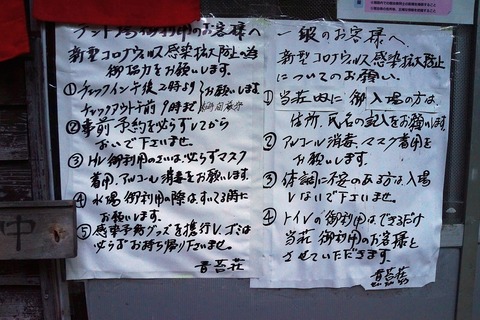 テント場御利用のお客様へ
新型コロナウィルス感染拡大防止の為
御協力をお願いします。
①チェックイン午後2時より
チェックアウト午前9時までお願いします
②事前予約を必らずしてから
おいで下さいませ。
③トイレ御利用のさいは、必らずマスク
着用、アルコール消毒をお願いします。
④水場 御利用の際は、すいてる時に
お願いします。
⑤感染予防グッズを携行し、ゴミは
必らずお持ち帰り下さいませ。
青苔荘
一般のお客様へ
新型コロナウィルス感染拡大防止
についてのお願い。
①当荘内に御入場の方は、
住所、氏名の記入をお願います。
②アルコール消毒、マスク着用を
お願いします。
③体調に不安のある方は、入場
しないで下さいませ。
④トイレの御利用は、できるだけ
当荘 御利用のお客様と
させていただきます。
青苔荘
中